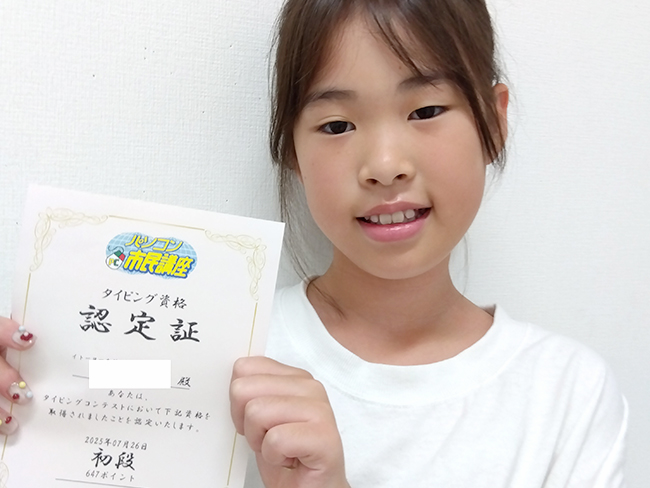 パソコン
市民講座
タイピング資格
認定証
殿
あなたは、
タイピングコンテストにおいて下記資格を
取得されましたことを認定いたします。
2025年07月26日
初段
647ポイント